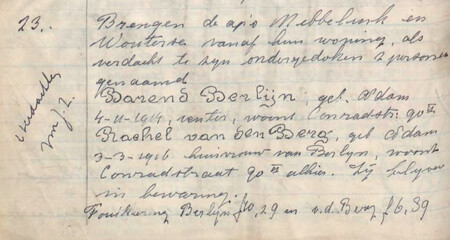 23.. Brengen de apo Mebbelink en
Wouterse vanaf hun woning, als
verdacht te zijn ondergedoken 2 personen
genaamd
Barend Berlijn, geb. A'dam
4-11-1914, venter, woont Conradstr. 90 II
Rachel van den Berg, geb A'dam
3-3-1916 huisvrouw van Berlijn, woont
Conradstraat 90 II alhier. Zij blijven
in bewaring.
Fouilleering Berlijn f 10,29 en v.d. Berg f 6,39